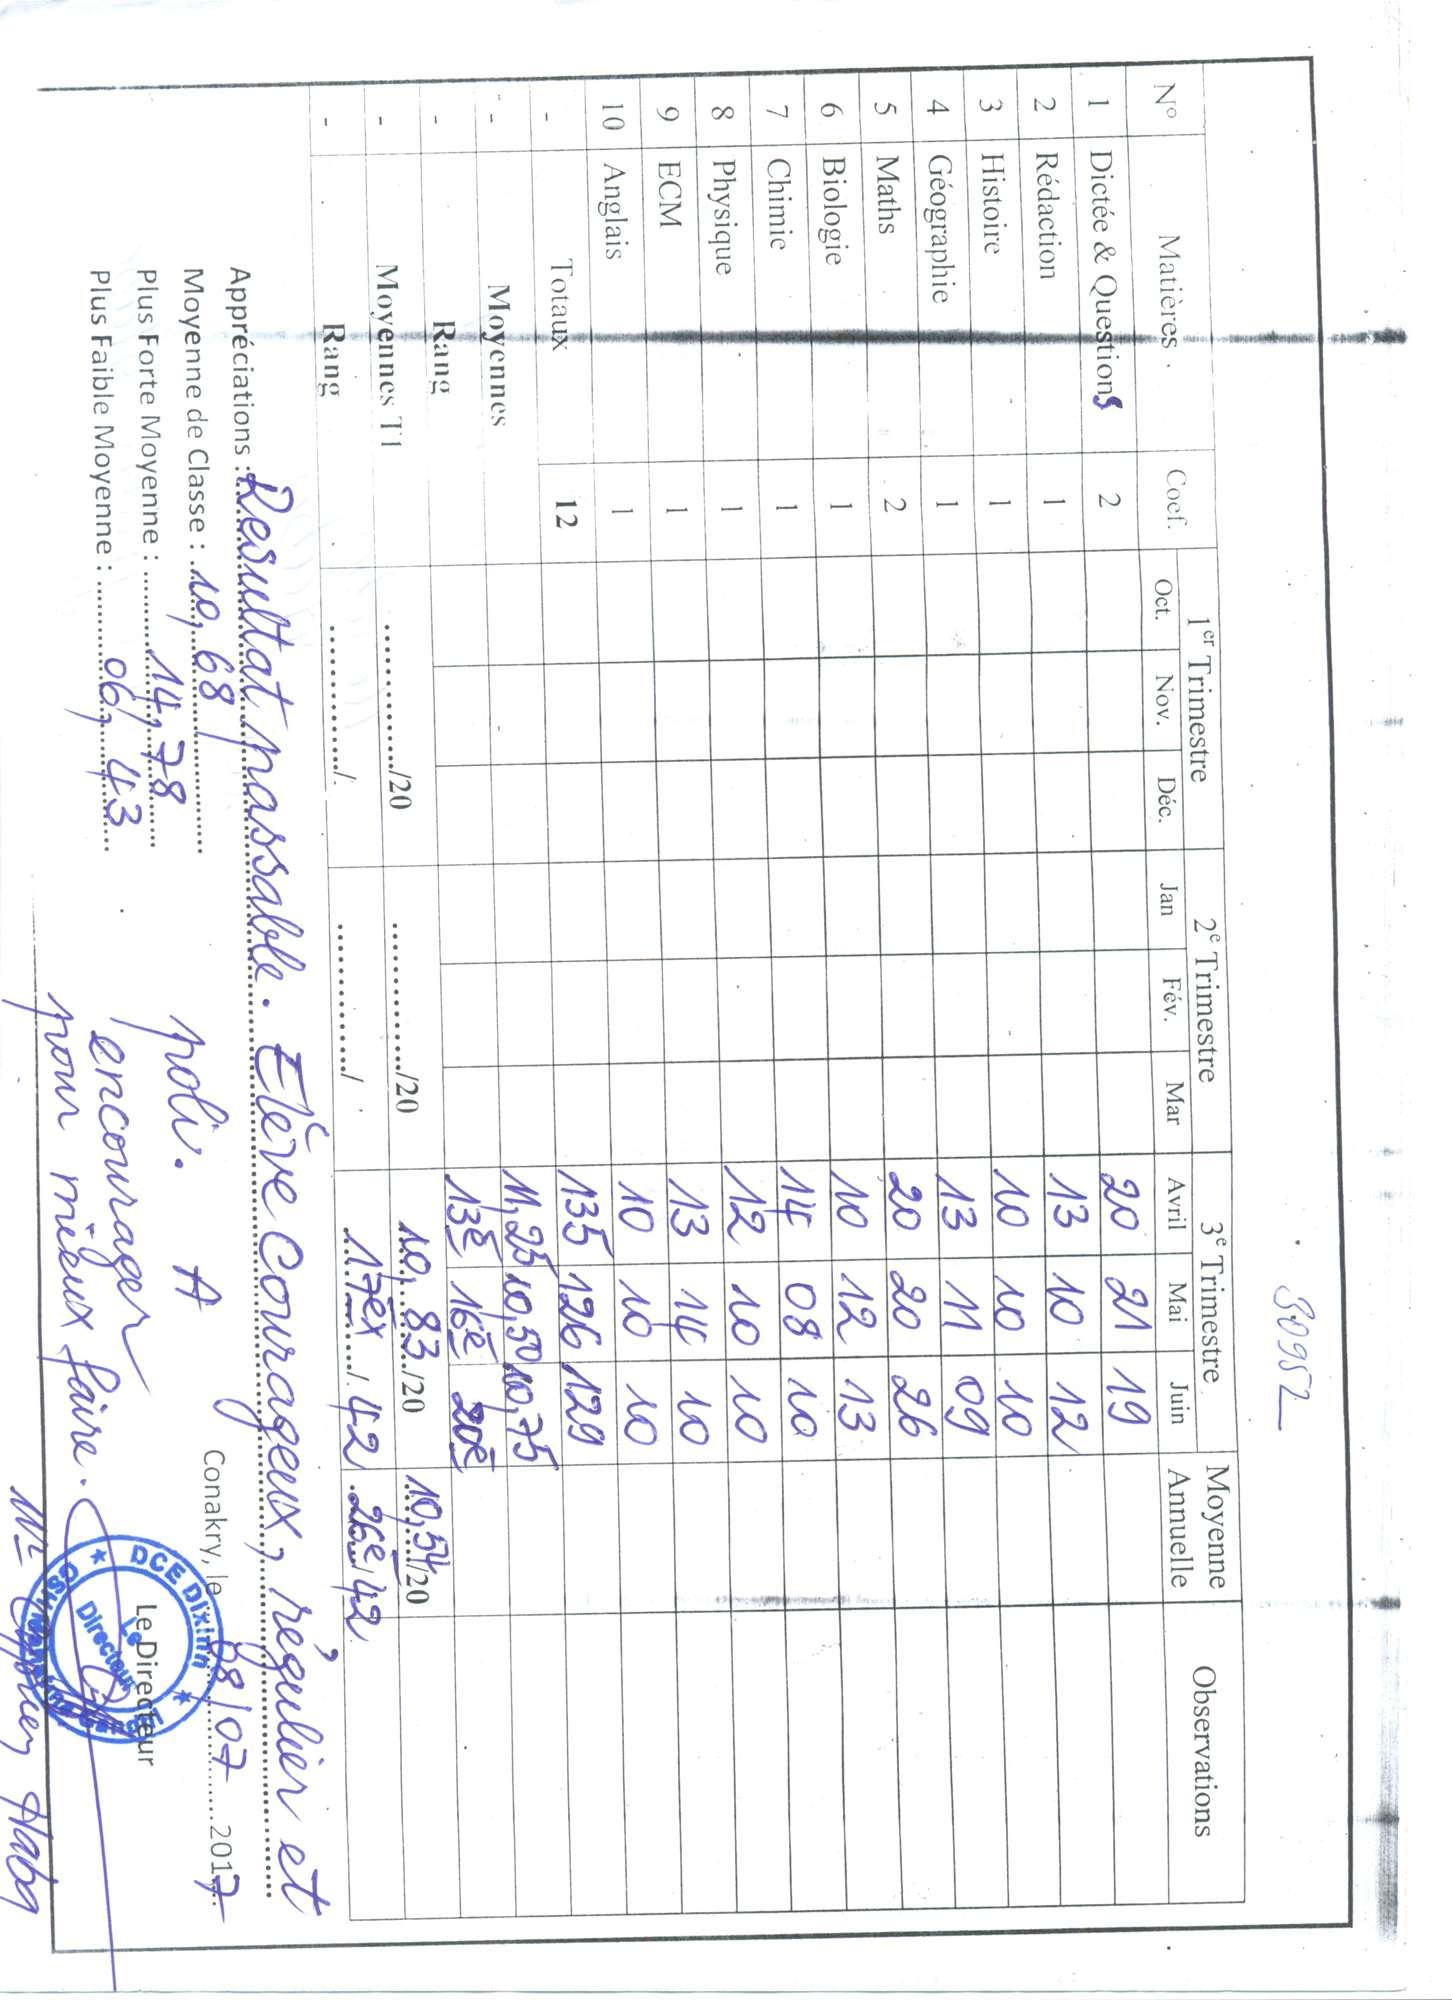 30952
N° Matières Coef. 1er Trimestre 2e Trimestre 3e Trimestre Moyenne Annuelle Observations
Oct. Nov. Déc. Jan Fév. Mar Avril Mai Juin
1 Dictée & Questions 2 20 21 19
2 Rédaction 1 13 10 12
3 Histoire 1 10 10 10
4 Géographie 1 13 11 09
5 Maths 2 20 20 26
6 Biologie 1 10 12 13
7 Chimie 1 14 08 10
8 Physique 1 12 10 10
9 ECM 1 13 14 10
10 Anglais 1 10 10 10
- Totaux 12 135 126 129
- Moyennes 11,25 10,50 10,75
- Rang 13e 16e 20e
- Moyennes T1 ............/20 ............/20 10,83/20 10,54/20
- Rang ............/ ............/ 17ex/42 26e/42
Appréciations : Resultat passable. Elève Courageux, régulier et
poli. A
encourager
pour mieux faire.
Moyenne de Classe : 10,68
Plus Forte Moyenne : 14,78
Plus Faible Moyenne : 06,43
Conakry, le 08/07 2017
Le Directeur
DCE Dixinn
Le
Directeur